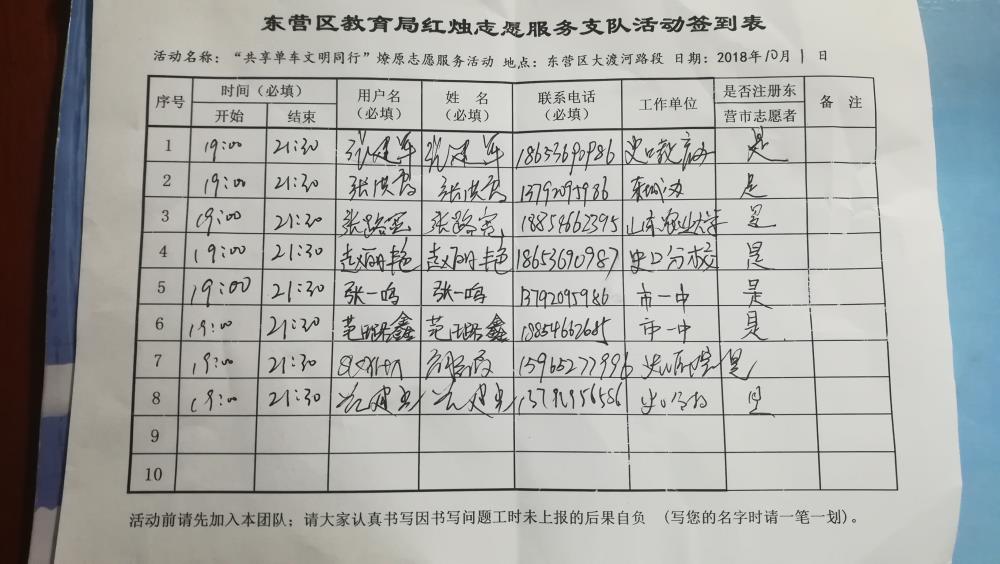 东营区教育局红烛志愿服务支队活动签到表
活动名称：“共享单车文明同行”燎原志愿服务活动 地点：东营区大渡河路段 日期：2018年10月1日
序号 时间（必填） 用户名（必填） 姓 名（必填） 联系电话（必填） 工作单位 是否注册东营市志愿者 备 注
开始 结束
1 19:00 21:30 张建军 张建军 18653690986 史口教育办 是
2 19:00 21:30 张洪 张洪 13792095986 是
3 19:00 21:30 张路宽 张路宽 18854662395 山东农业大学 是
4 19:00 21:30 赵丽艳 赵丽艳 18653690987 史口分校 是
5 19:00 21:30 张一鸣 张一鸣 13792095986 市一中 是
6 19:00 21:30 范鑫 范鑫 市一中 是
7 19:00 21:30 是
8 19:00 21:30 是
9
10
活动前请先加入本团队；请大家认真书写因书写问题工时未上报的后果自负 （写您的名字时请一笔一划）。